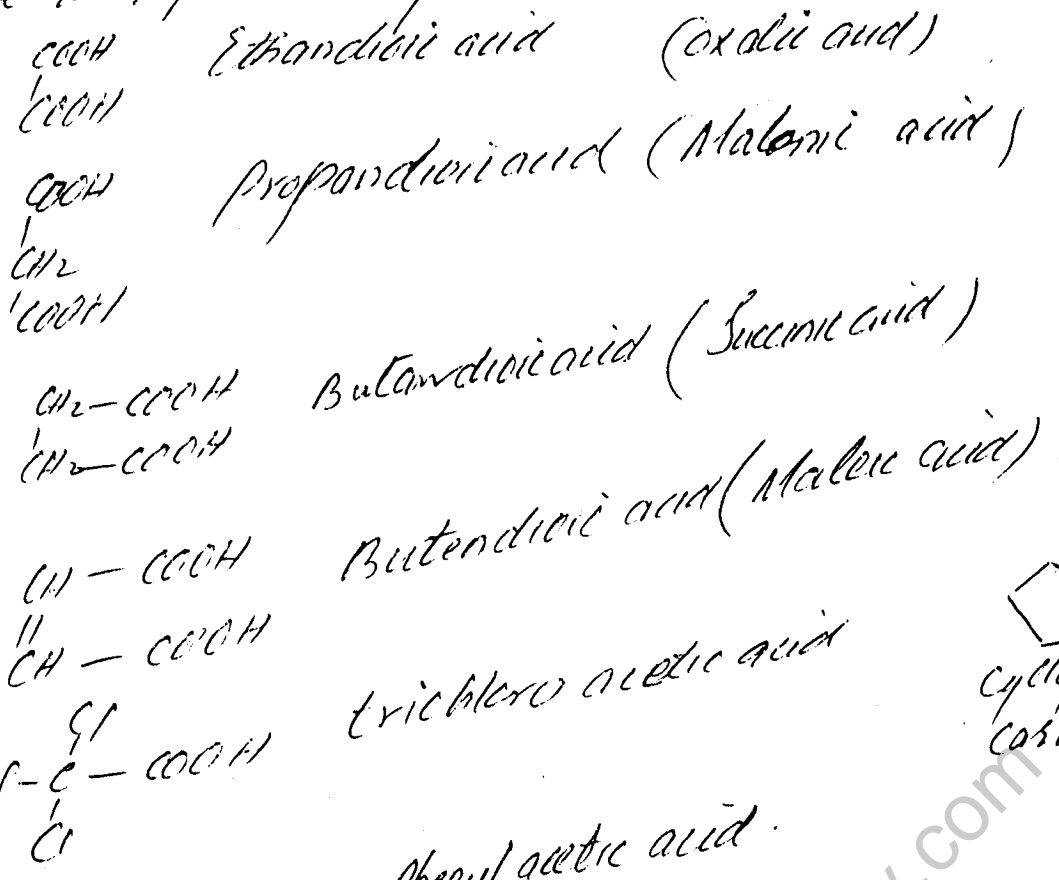 COOH Ethandioic acid (oxalic acid)
COOH
COOH Propandioic acid (Malonic acid)
CH2
COOH
CH2—COOH Butandioic acid (Succinic acid)
CH2—COOH
CH — COOH Butendioic acid (Maleic acid)
||
CH — COOH
Cl trichloro acetic acid
–C — COOH
Cl
Phenyl acetic acid.
.com